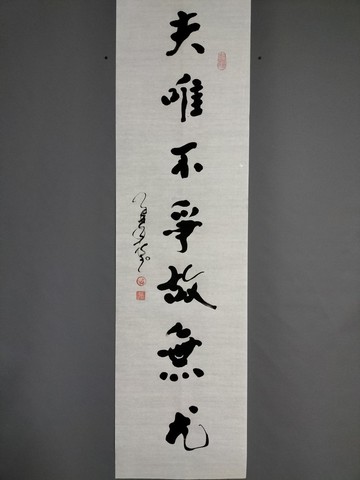 夫唯不爭故無尤